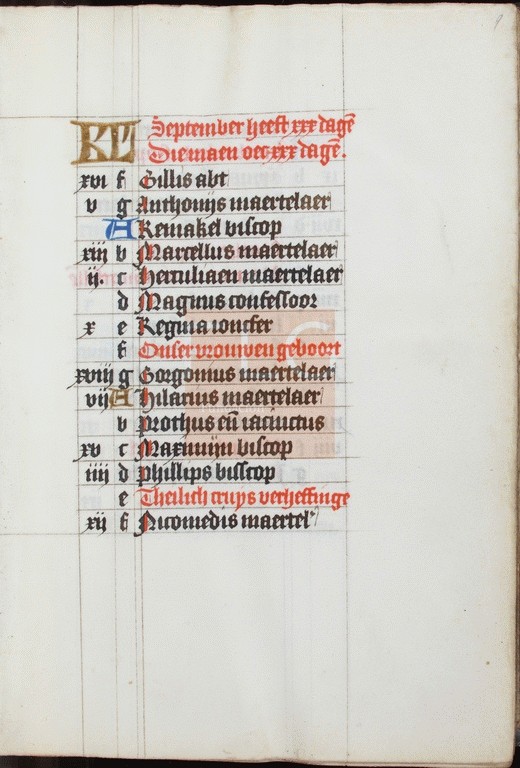 9
KL September heeft xxx dagē
Die maen oec xxx dagē.
xvi f Gillis abt
v g Anthonijs maertelaer
A Remakel biscop
xiii b Marcellus maertelaer
ii. c Herculiaen maertelaer
d Magnus confessoor
x e Regina ioncfer
f Onser vrouwen geboort
xviij g Gorgonius maertelaer
vij A Hilarius maertelaer
b Prothus eñ iacinctus
xv c Maximijn biscop
iiii d Phillips bisscop
e Theilich cruys verheffinge
xij f Nicomedis maertel'